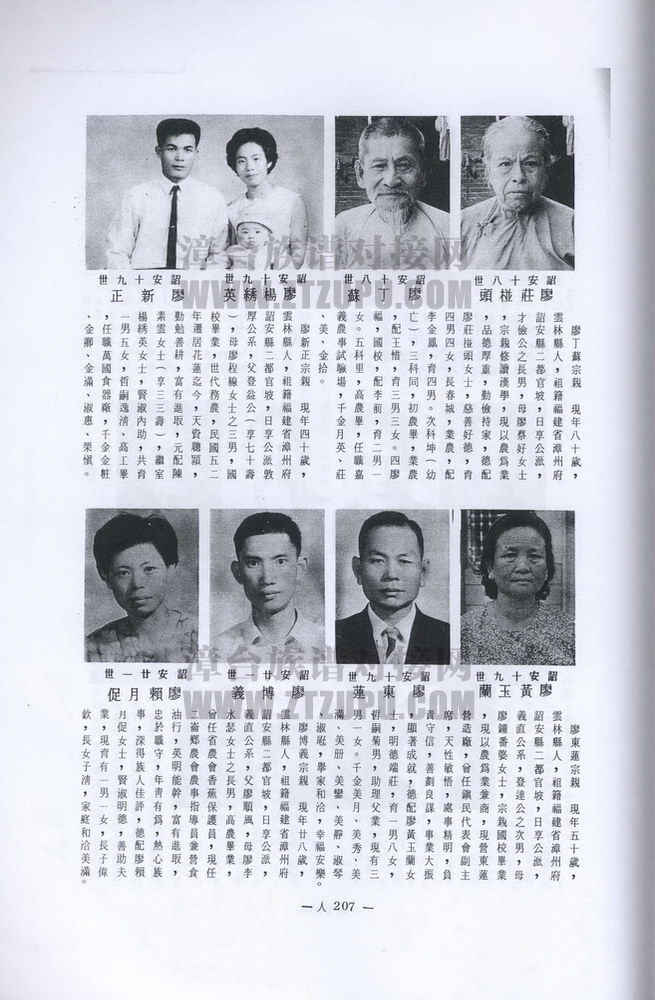 詔安十八世
廖莊椪頭
詔安十八世
廖丁蘇
詔安十九世
廖楊綉英
詔安十九世
廖新正
廖丁蘇宗親 現年八十歲,
雲林縣人,祖籍福建省漳州府
詔安縣二都官坡,日享公派,
才儉公之長男,母廖蔡好女士
,宗親修讀漢學,現以農爲業
,品德厚重,勤儉持家,德配
廖莊椪頭女士,慈善好德,育
四男四女,長春城,業農,配
李金鳳,育四男。次科坤(幼
亡),三科同,初農畢,業農
,配王惜,育三男三女。四廖
福,國校,配李前,育二男一
女。五科里,高農畢,任職嘉
義農事試驗場,千金月英、莊
美、金拾。
廖新正宗親 現年四十歲,
雲林縣人,祖籍福建省漳州府
詔安縣二都官坡,日享公派敦
厚公系,父登益公(享七十壽
),母廖程線女士之三男,國
校畢業,世代務農,民國五二
年遷居花蓮迄今,天資聰頴,
勤勉善耕,富有進取,元配陳
素雲女士(享三三壽),繼室
楊綉英女士,賢淑內助,共育
一男五女,哲嗣逸清、高工畢
,任職萬國食器廠,千金金粧
、金卿、金滿、淑惠、榮愼。
詔安十九世
廖黃玉蘭
詔安十九世
廖東蓮
詔安廿一世
廖博義
詔安廿一世
廖賴月促
廖東蓮宗親 現年五十歲,
雲林縣人,祖籍福建省漳州府
詔安縣二都官坡,日享公派,
義直公系,登達公之次男,母
廖鐘番婆女士,宗親國校畢業
,現以農爲業兼商,現營東蓮
營造廠,曾任鎭民代表會副主
席,天性敏悟,處事精明,負
責守信,善劃良謀,事業大振
,顯著成就,德配廖黃玉蘭女
士,明德端莊,育一男八女,
哲嗣菊男,助理父業,現有三
男一女。千金美月、美秀、美
滿、美册、美鑾、美靜、淑琴
、淑庭,擧家和洽,幸福安樂。
廖博義宗親 現年廿八歲,
雲林縣人,祖籍福建省漳州府
詔安縣二都官坡,日享公派,
義直公系,父廖順風,母廖李
水瑟女士之長男,高農畢業,
曾任省農會香蕉保護員,現任
二崙鄉農會農事指導員兼營食
油行,英明能幹,富有進取,
忠於職守,年靑有爲,熱心族
事,深得族人佳評,德配廖賴
月促女士,賢淑明德,善助夫
業,現育有一男一女,長子偉
欽,長女子淸,家庭和洽美滿。
— 人 207 —
漳台族谱对接网
WWW.ZTZUPU.COM
漳台族谱对接网
WWW.ZTZUPU.COM